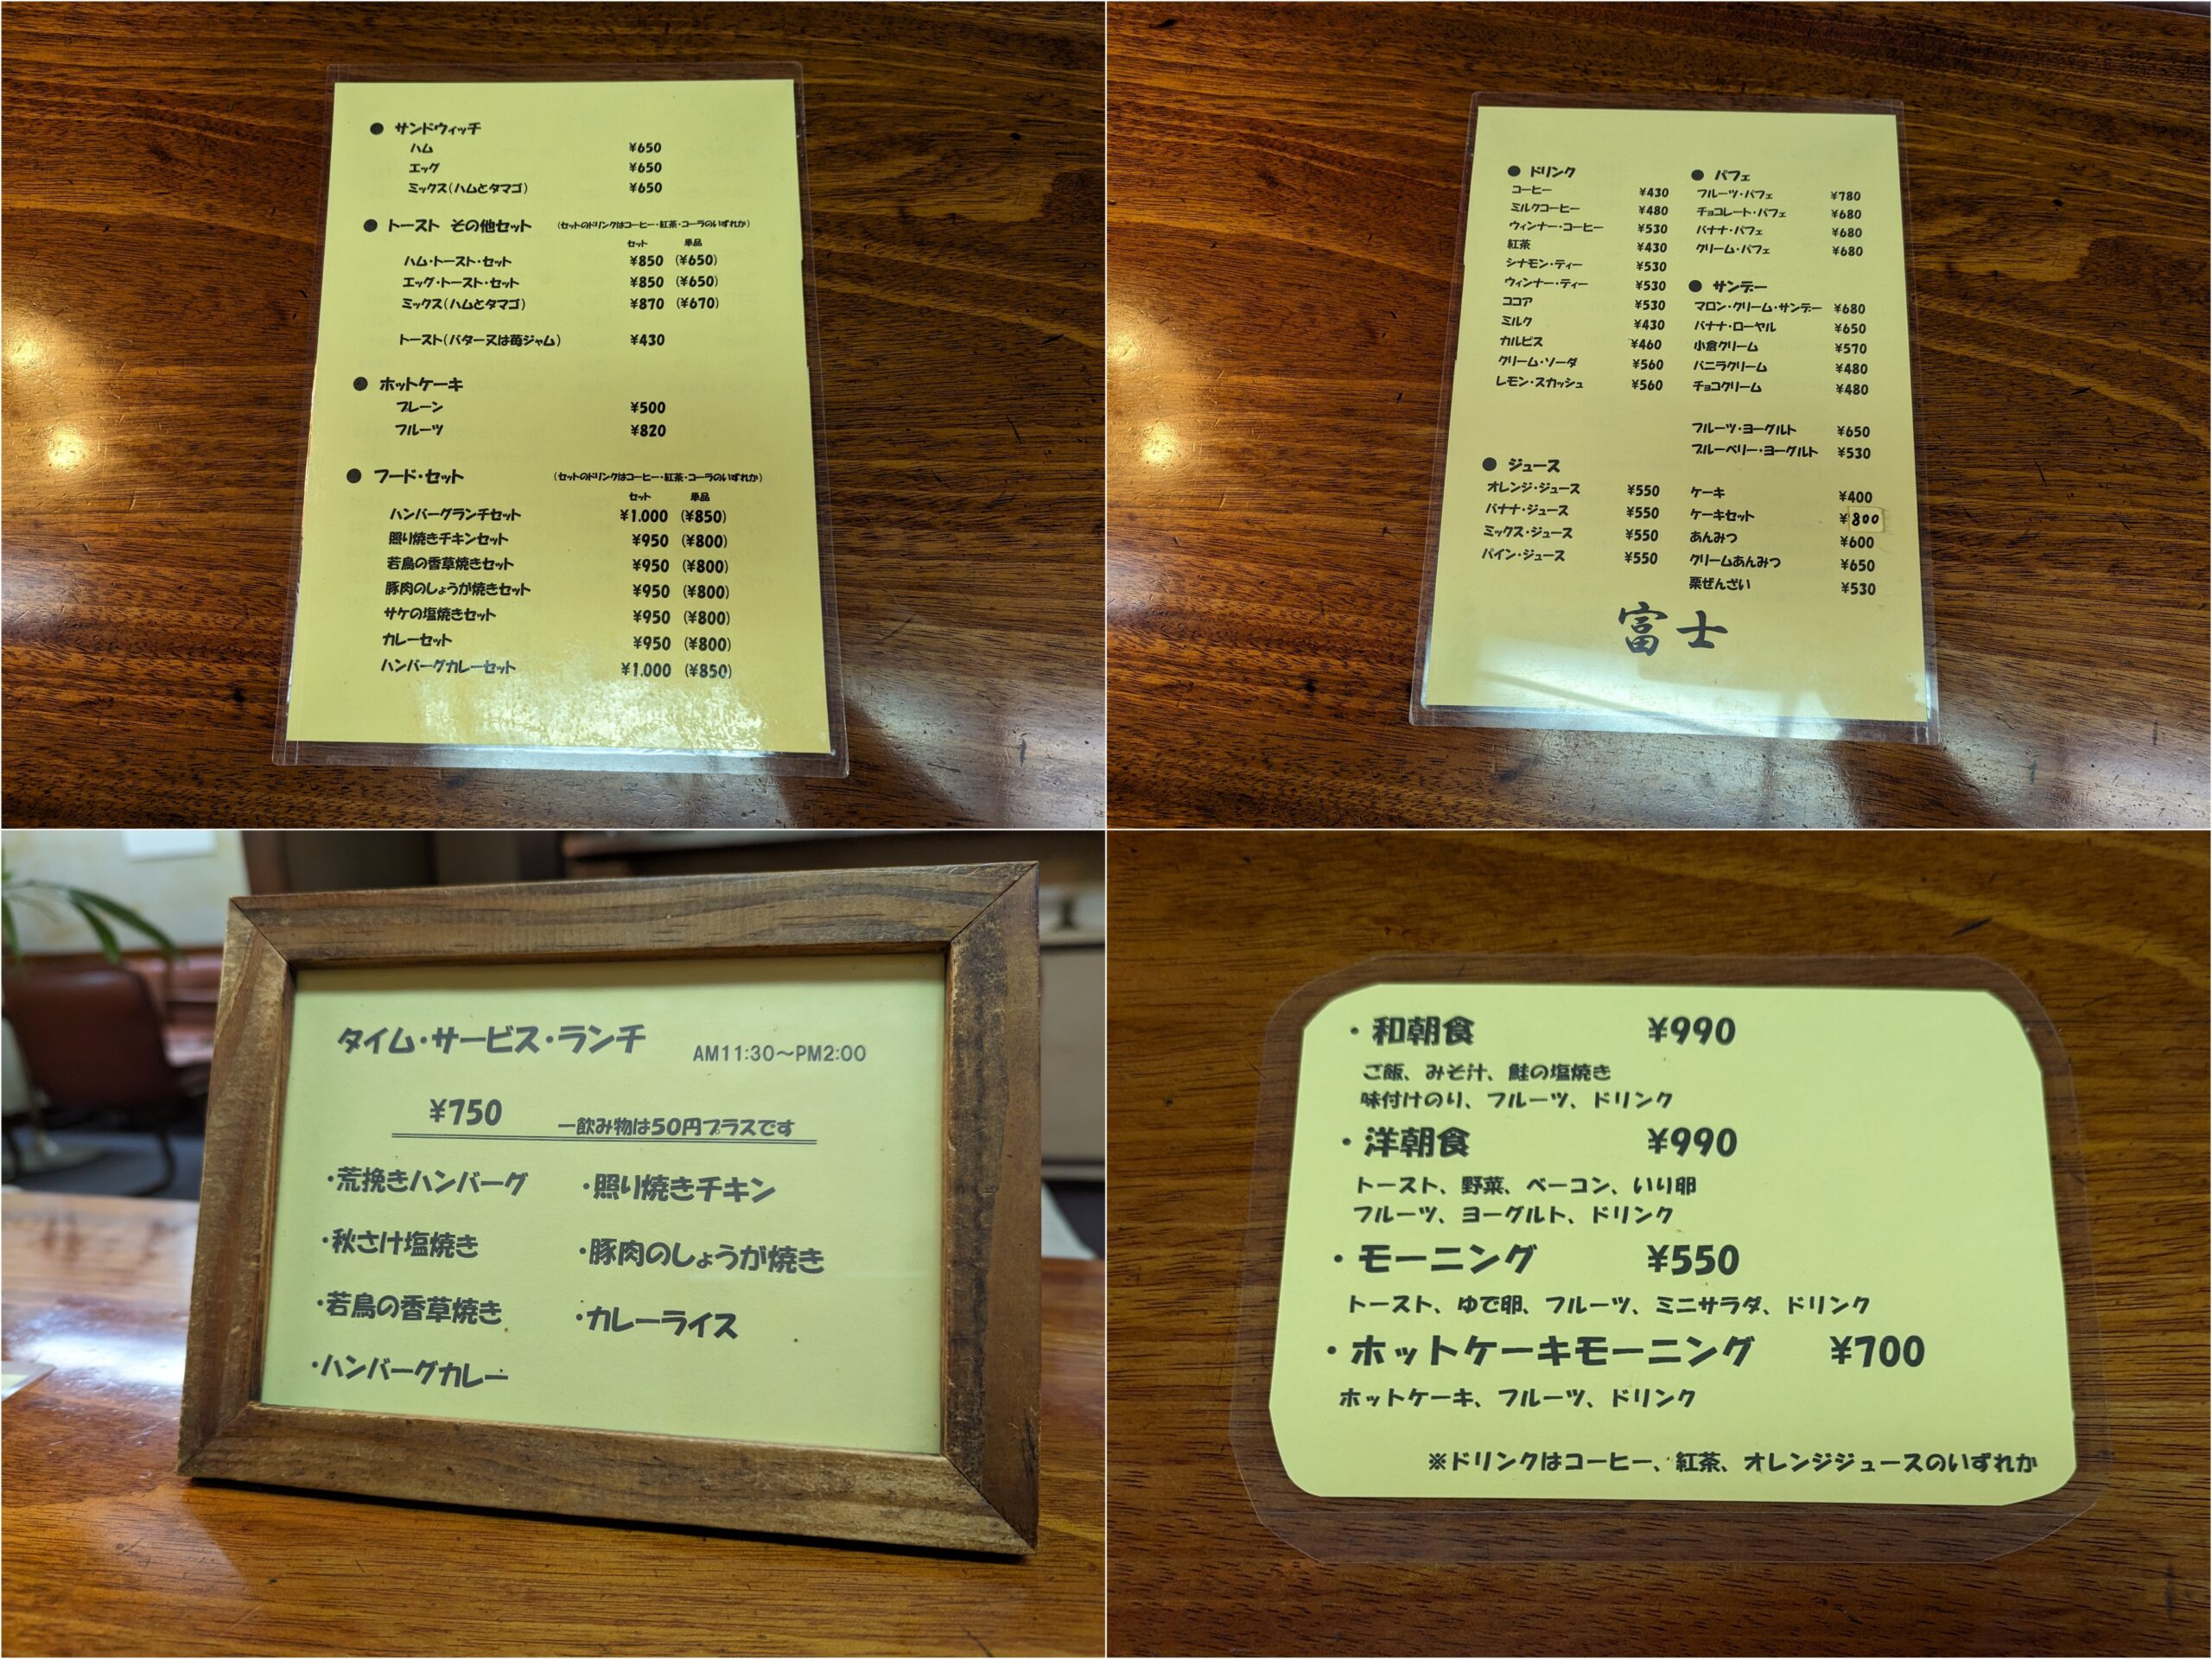 ● サンドウィッチ
ハム ¥650
エッグ ¥650
ミックス(ハムとタマゴ) ¥650
● トースト その他セット (セットのドリンクはコーヒー・紅茶・コーラのいずれか)
セット 単品
ハム・トースト・セット ¥850 (¥650)
エッグ・トースト・セット ¥850 (¥650)
ミックス(ハムとタマゴ) ¥870 (¥670)
トースト(バター又は苺ジャム) ¥430
● ホットケーキ
プレーン ¥500
フルーツ ¥820
● フード・セット (セットのドリンクはコーヒー・紅茶・コーラのいずれか)
セット 単品
ハンバーグランチセット ¥1.000 (¥850)
照り焼きチキンセット ¥950 (¥800)
若鳥の香草焼きセット ¥950 (¥800)
豚肉のしょうが焼きセット ¥950 (¥800)
サケの塩焼きセット ¥950 (¥800)
カレーセット ¥950 (¥800)
ハンバーグカレーセット ¥1.000 (¥850)
● ドリンク
コーヒー ¥430
ミルクコーヒー ¥480
ウィンナー・コーヒー ¥530
紅茶 ¥430
シナモン・ティー ¥530
ウィンナー・ティー ¥530
ココア ¥530
ミルク ¥430
カルピス ¥460
クリーム・ソーダ ¥560
レモン・スカッシュ ¥560
● ジュース
オレンジ・ジュース ¥550
バナナ・ジュース ¥550
ミックス・ジュース ¥550
パイン・ジュース ¥550
● パフェ
フルーツ・パフェ ¥780
チョコレート・パフェ ¥680
バナナ・パフェ ¥680
クリーム・パフェ ¥680
● サンデー
マロン・クリーム・サンデー ¥680
バナナ・ローヤル ¥650
小倉クリーム ¥570
バニラクリーム ¥480
チョコクリーム ¥480
フルーツ・ヨーグルト ¥650
ブルーベリー・ヨーグルト ¥530
ケーキ ¥400
ケーキセット ¥800
あんみつ ¥600
クリームあんみつ ¥650
栗ぜんざい ¥530
富士
タイム・サービス・ランチ AM11:30～PM2:00
¥750 ー飲み物は50円プラスです
・荒挽きハンバーグ ・照り焼きチキン
・秋さけ塩焼き ・豚肉のしょうが焼き
・若鳥の香草焼き ・カレーライス
・ハンバーグカレー
・和朝食 ¥990
ご飯、みそ汁、鮭の塩焼き
味付けのり、フルーツ、ドリンク
・洋朝食 ¥990
トースト、野菜、ベーコン、いり卵
フルーツ、ヨーグルト、ドリンク
・モーニング ¥550
トースト、ゆで卵、フルーツ、ミニサラダ、ドリンク
・ホットケーキモーニング ¥700
ホットケーキ、フルーツ、ドリンク
※ドリンクはコーヒー、紅茶、オレンジジュースのいずれか